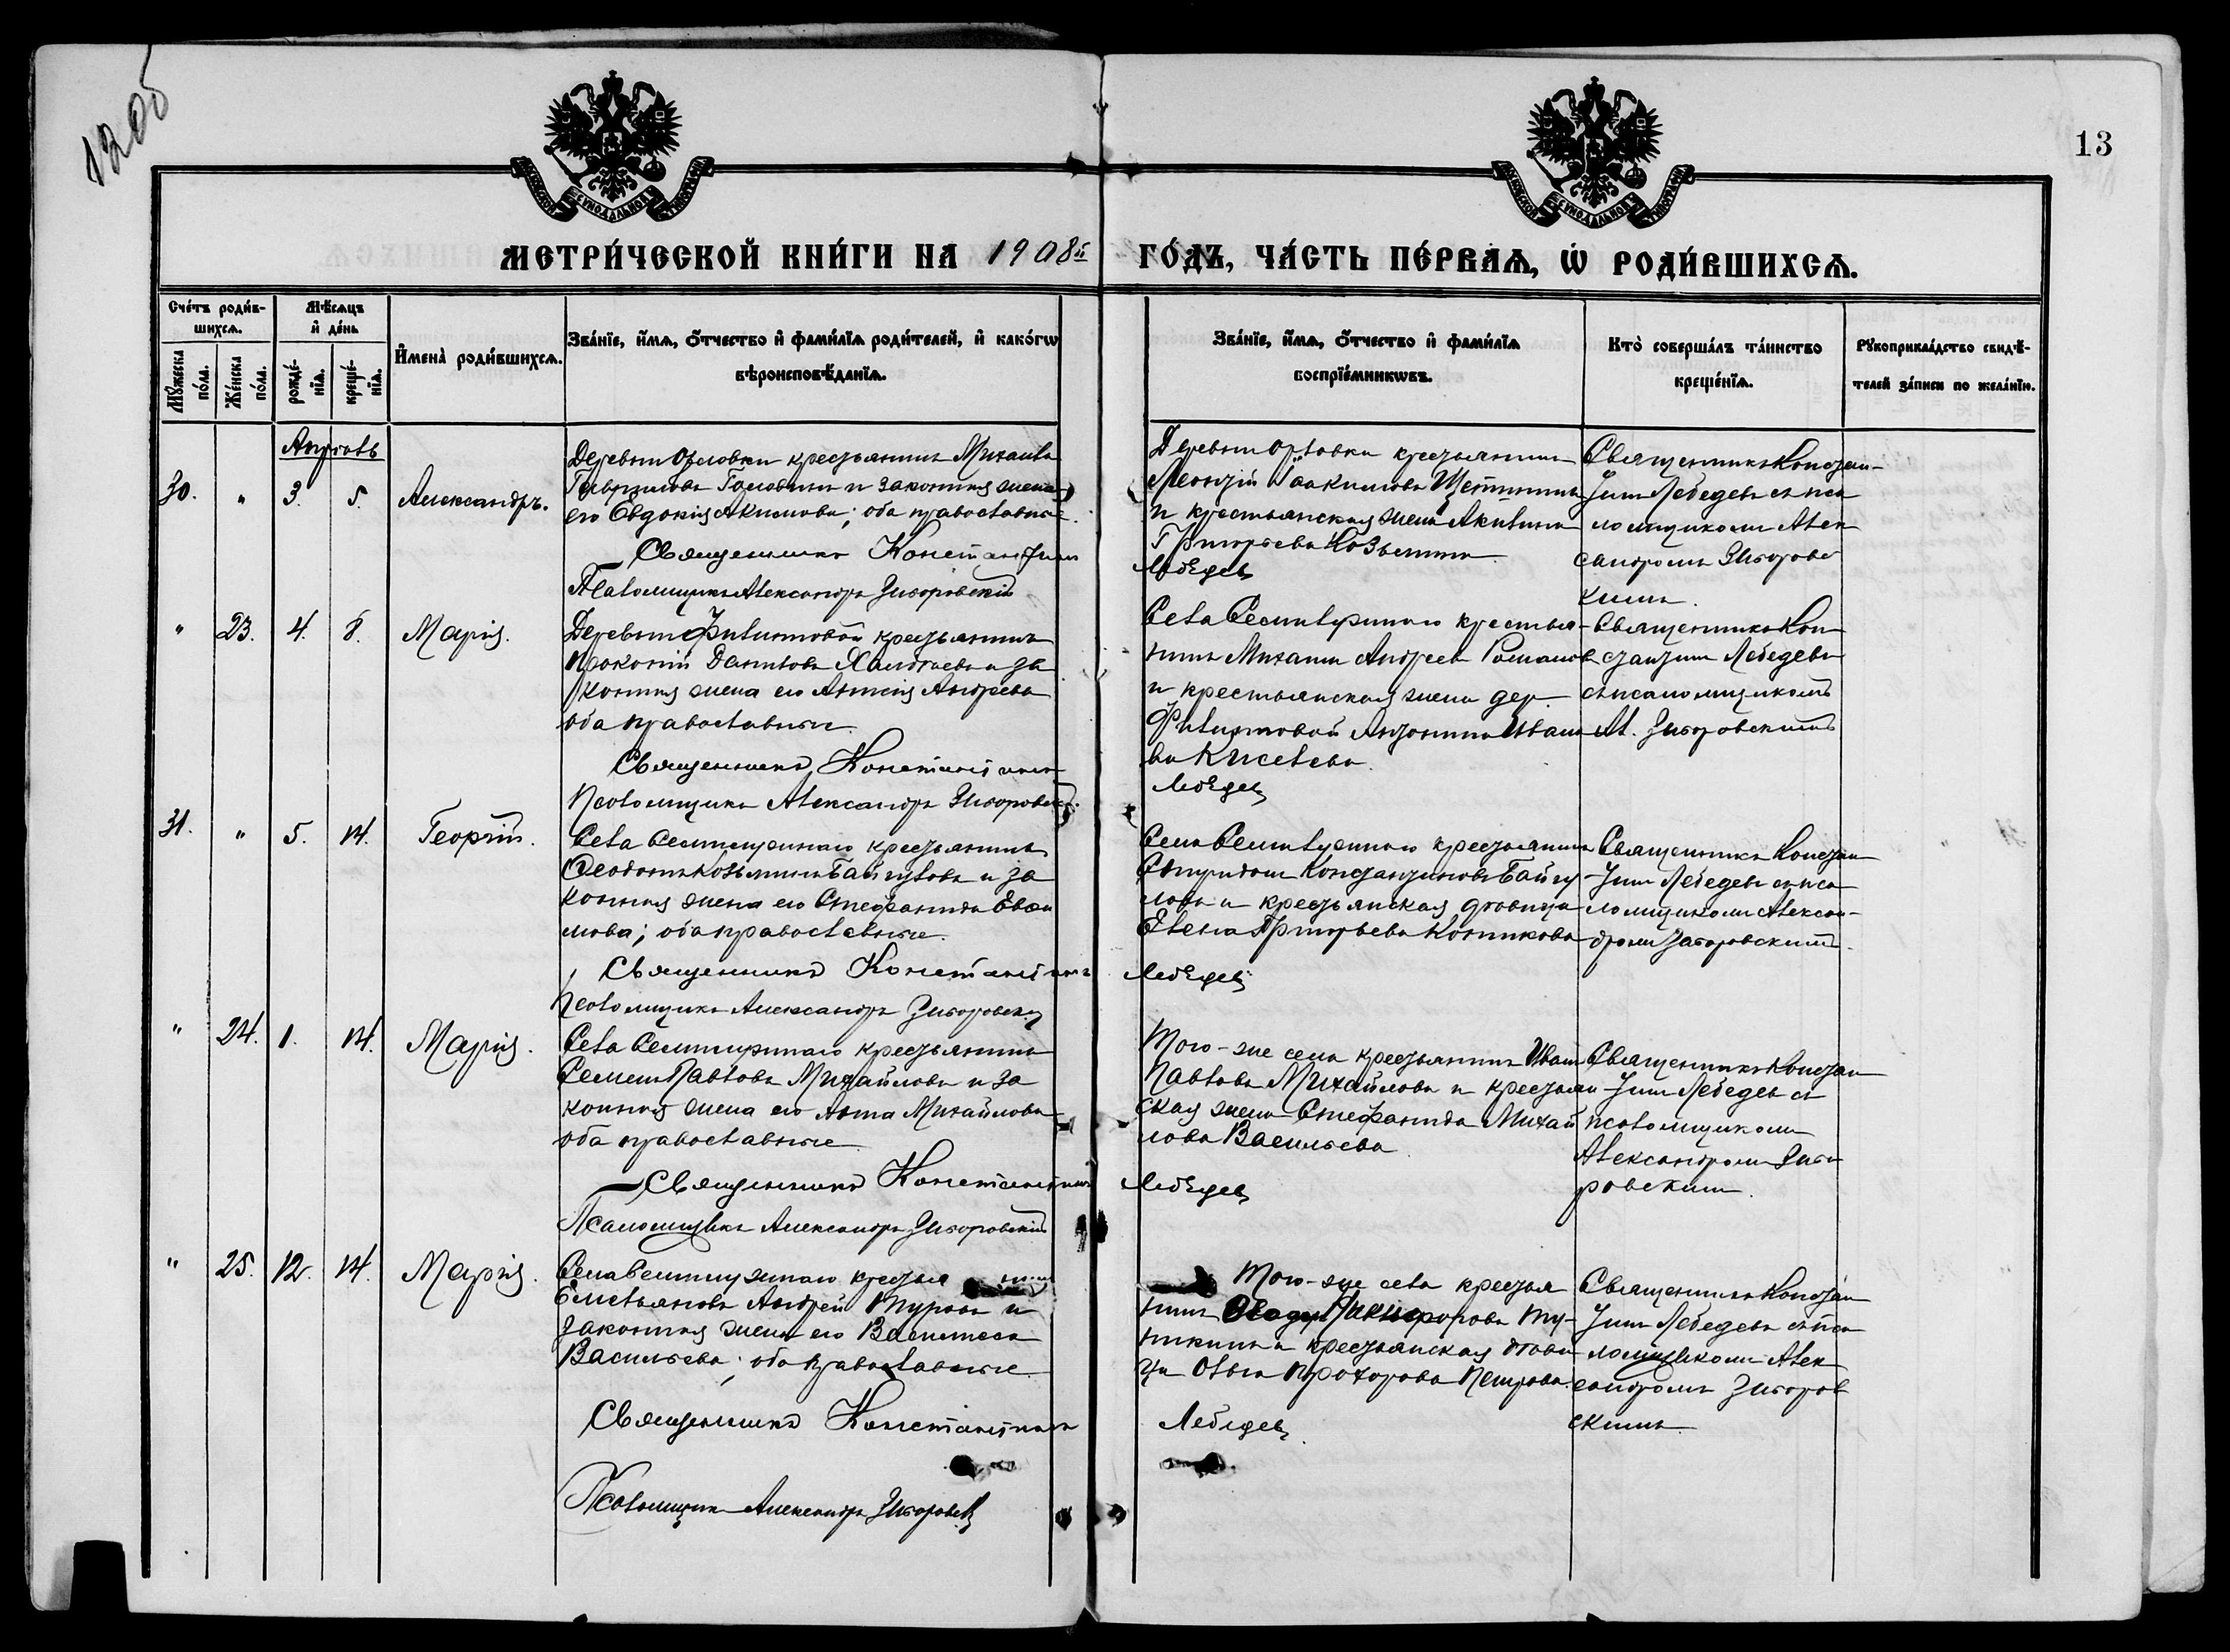 1205
13
МОСКОВСКОЙ СѴНОДАЛЬНОЙ ТИПОГРАФІИ
МОСКОВСКОЙ СѴНОДАЛЬНОЙ ТИПОГРАФІИ
МЕТРИ́ЧЕСКОЙ КНИ́ГИ НА 1908й
ГО́ДЪ, ЧА́СТЬ ПЕ́РВАѦ, Ѡ РОДИ́ВШИХСѦ.
Сче́тъ роди́в-
шихсѧ.
Мꙋ́жеска по́ла.
Же́нска по́ла.
Мѣ́сѧцъ
и҆ де́нь
рожде́-
нїѧ.
креще́-
нїѧ.
И҆мена̀ роди́вшихсѧ.
Зва́нїе, и҆́мѧ, ѻ҆́тчество и҆ фами́лїѧ роди́телей, и҆ како́гѡ
вѣроисповѣ́данїѧ.
Зва́нїе, и҆́мѧ, ѻ҆́тчество и҆ фами́лїѧ
воспрїе́мникѡвъ.
Кто̀ соверша́лъ та́инство
креще́нїѧ.
Рꙋкоприкла́дство свидѣ́-
телей за́писи по жела́нїю.
Апрѣль
30. " 3. 5. Александръ.
Деревни Орловки крестьянинъ Михаилъ
Гавриловъ и законная жена
его Евдокія Акимова; оба православные.
Священникъ Константинъ
Псаломщикъ Александръ Зиборовскій
Деревни Орловки крестьянинъ
Леонтій Іоакимовъ Щетининъ
и крестьянская жена Акилина
Григорьева Козьмина
Лебедевъ
Священникъ Констан-
тинъ Лебедевъ съ пса
ломщикомъ Алек
сандромъ Зиборовс
кимъ.
" 23. 4. 8. Марія.
Деревни Филипповой крестьянинъ
Прокопій Даниловъ и за
конная жена его Андреева
оба православные.
Священникъ Константинъ
Псаломщикъ Александръ Зиборовскій.
Села крестья-
нинъ Михаилъ Андреевъ Романовъ
и крестьянская жена дер.
Филипповой Антонина Ивано
ва Киселева.
Лебедевъ
Священникъ Кон
стантинъ Лебедевъ
съ псаломщикомъ
Ал. Зиборовскимъ
31. " 5. 14. Георгій.
Села крестьянинъ
Ѳеодотъ Козьминъ Байгуловъ и за
конная жена его Стефанида
мова; оба православные.
Священникъ Константинъ
Псаломщикъ Александръ Зиборовскій
Села крестьянинъ
Спиридонъ Константиновъ Байгу
ловъ и крестьянская вдовица
Елена Григорьева
Лебедевъ
Священникъ Констан
тинъ Лебедевъ съ пса
ломщикомъ Алексан-
дромъ Зиборовскимъ.
" 24. 1. 14. Марія.
Села крестьянинъ
Семенъ Павловъ Михайловъ и за
конная жена его Анна Михайлова
оба православные
Священникъ Константинъ
Псаломщикъ Александръ Зиборовскій
Того-же села крестьянинъ Иванъ
Павловъ Михайловъ и крестьян
ская жена Стефанида Михай
лова Васильева
Лебедевъ
Священникъ Констан
тинъ Лебедевъ съ
псаломщикомъ
Александромъ Зибо
ровскимъ.
" 25. 12. 14. Марія.
Села крестья нинъ
Емельяновъ Андрей и
законная жена его Василисса
Васильева; оба православные
Священникъ Константинъ
Псаломщикъ Александръ Зиборовскій
Того-же села крестья
нинъ Никифоровъ
и крестьянская вдови
ца Ольга Прохорова Петрова.
Лебедевъ
Священникъ Констан
тинъ Лебедевъ съ пса
ломщикомъ Алек
сандромъ Зиборов
скимъ